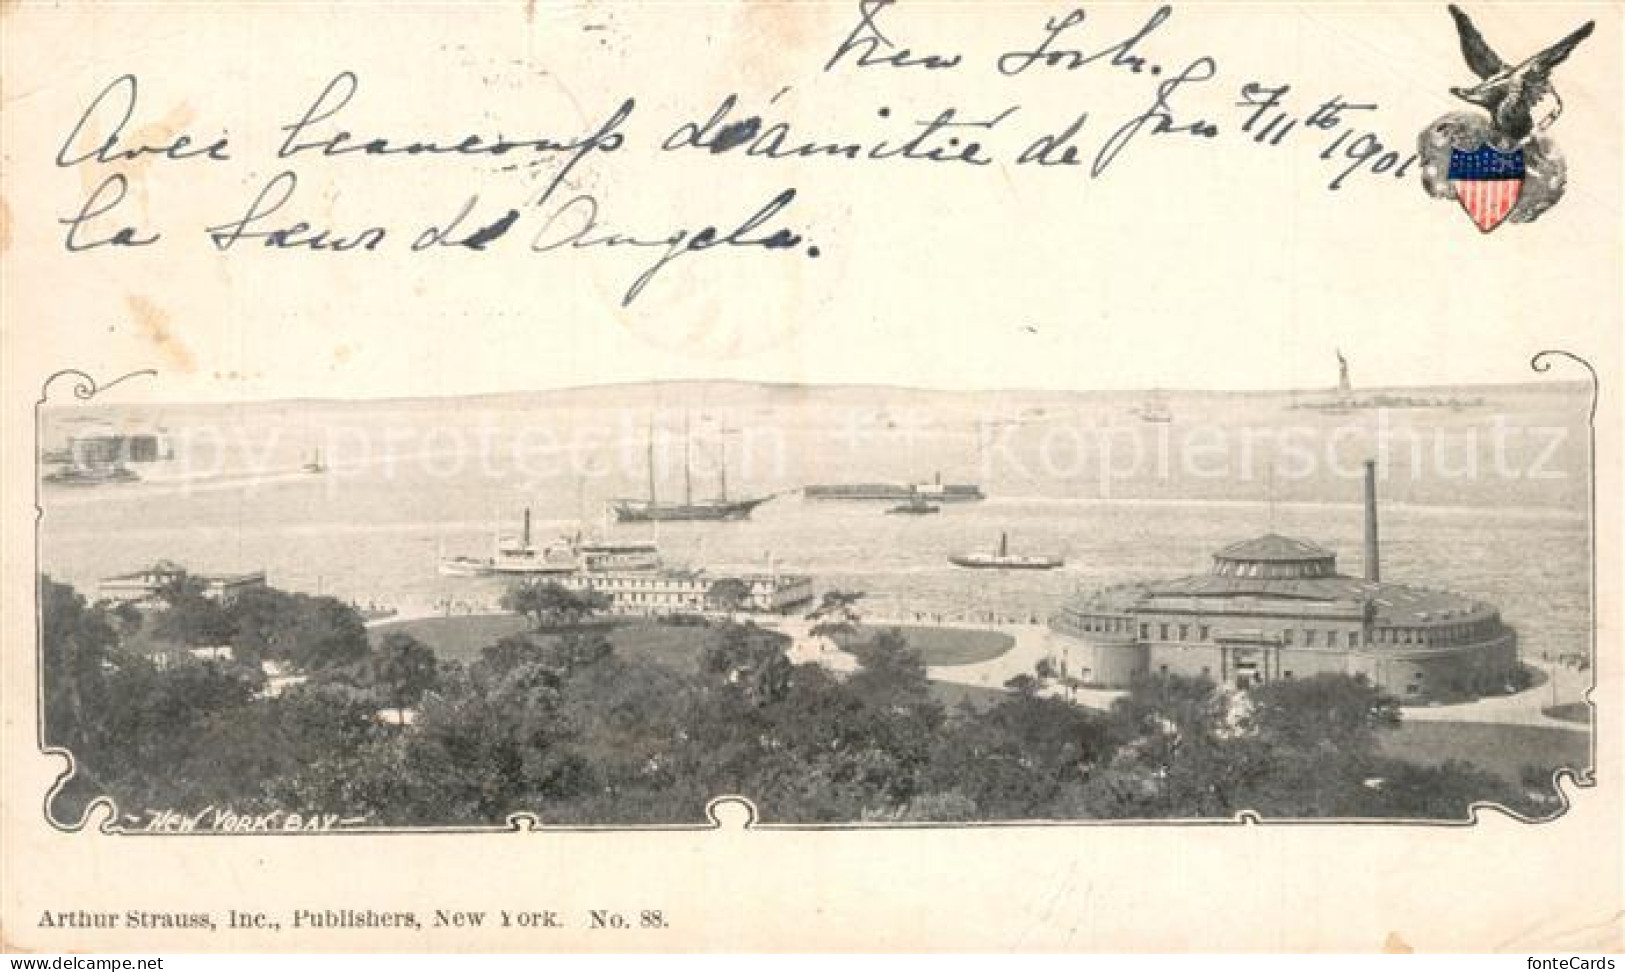 New York.
Jan 7/11th 1901
Avec beaucoup d'amitié de
la Sœur de Angela.
copy protection ++ Kopierschutz
~ NEW YORK BAY ~
Arthur Strauss, Inc., Publishers, New York. No. 88.
www.delcampe.net
fonteCards